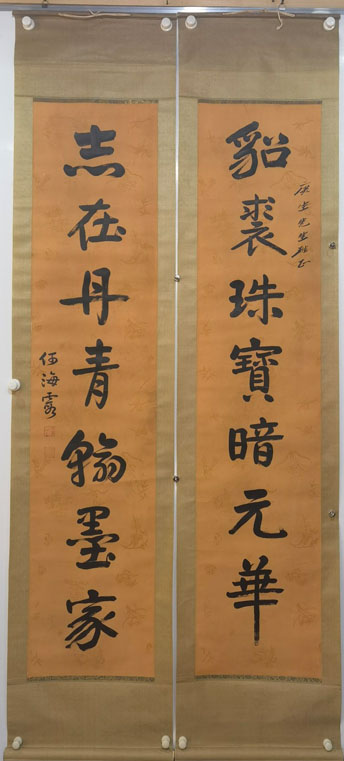 貂裘珠寶暗元華
先生雅正
志在丹青翰墨家
任海霞